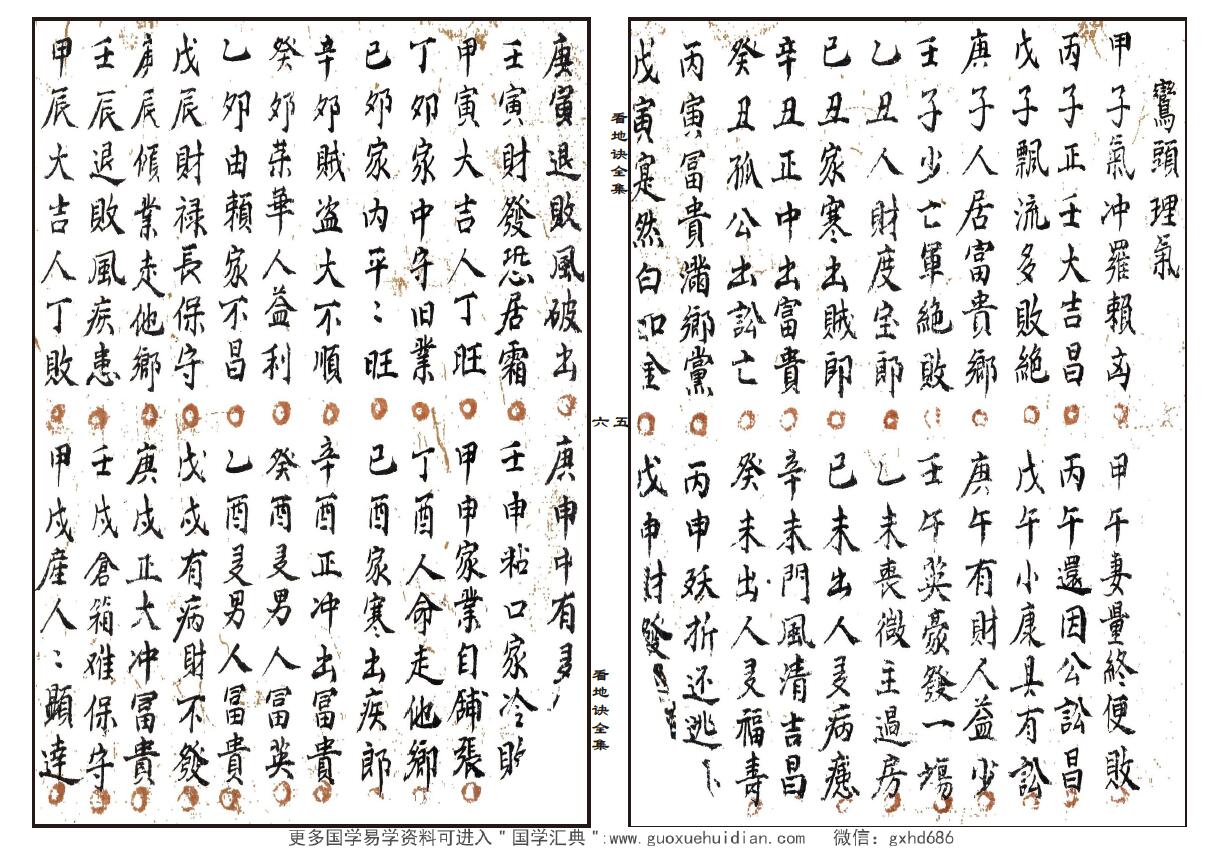 鸞頭理氣
甲子氣冲羅賴凶
甲午妻量終便敗
丙子正壬大吉昌
丙午還因公訟昌
戊子飄流多敗絕
戊午小康具有訟
庚子人居富貴鄉
庚午有財人益少
壬子少亡軍絕敗
壬午英豪發一塲
乙丑人財度宝郎
乙未喪微主過房
己丑家寒出賊郎
己未出人多病瘧
辛丑正中出富貴
辛未門風清吉昌
癸丑孤公出訟亡
癸未出人多福壽
丙寅冨貴滿鄉黨
丙申殀折还逃
戊寅寔然白如金
戊申財發
看地诀全集
六五
看地诀全集
庚寅退敗風破出
庚申中有多
壬寅財發恐居霜
壬申粘口家冷
甲寅大吉人丁旺
甲申家業自舖張
丁夘家中守旧業
丁酉人命走他鄉
己夘家内平〻旺
己酉家寒出疾郎
辛夘賊盗大不順
辛酉正冲出冨貴
癸夘荣華人益利
癸酉多男人冨英
乙夘由賴家不昌
乙酉多男人冨貴
戊辰財禄長保守
戊戍有病財不發
庚辰傾業走他鄉
庚戍正大冲冨貴
壬辰退敗風疾患
壬戍倉箱难保守
甲辰大吉人丁敗
甲戍産人〻顕達
更多国学易学资料可进入＂国学汇典＂:www.guoxuehuidian.com 微信：gxhd686